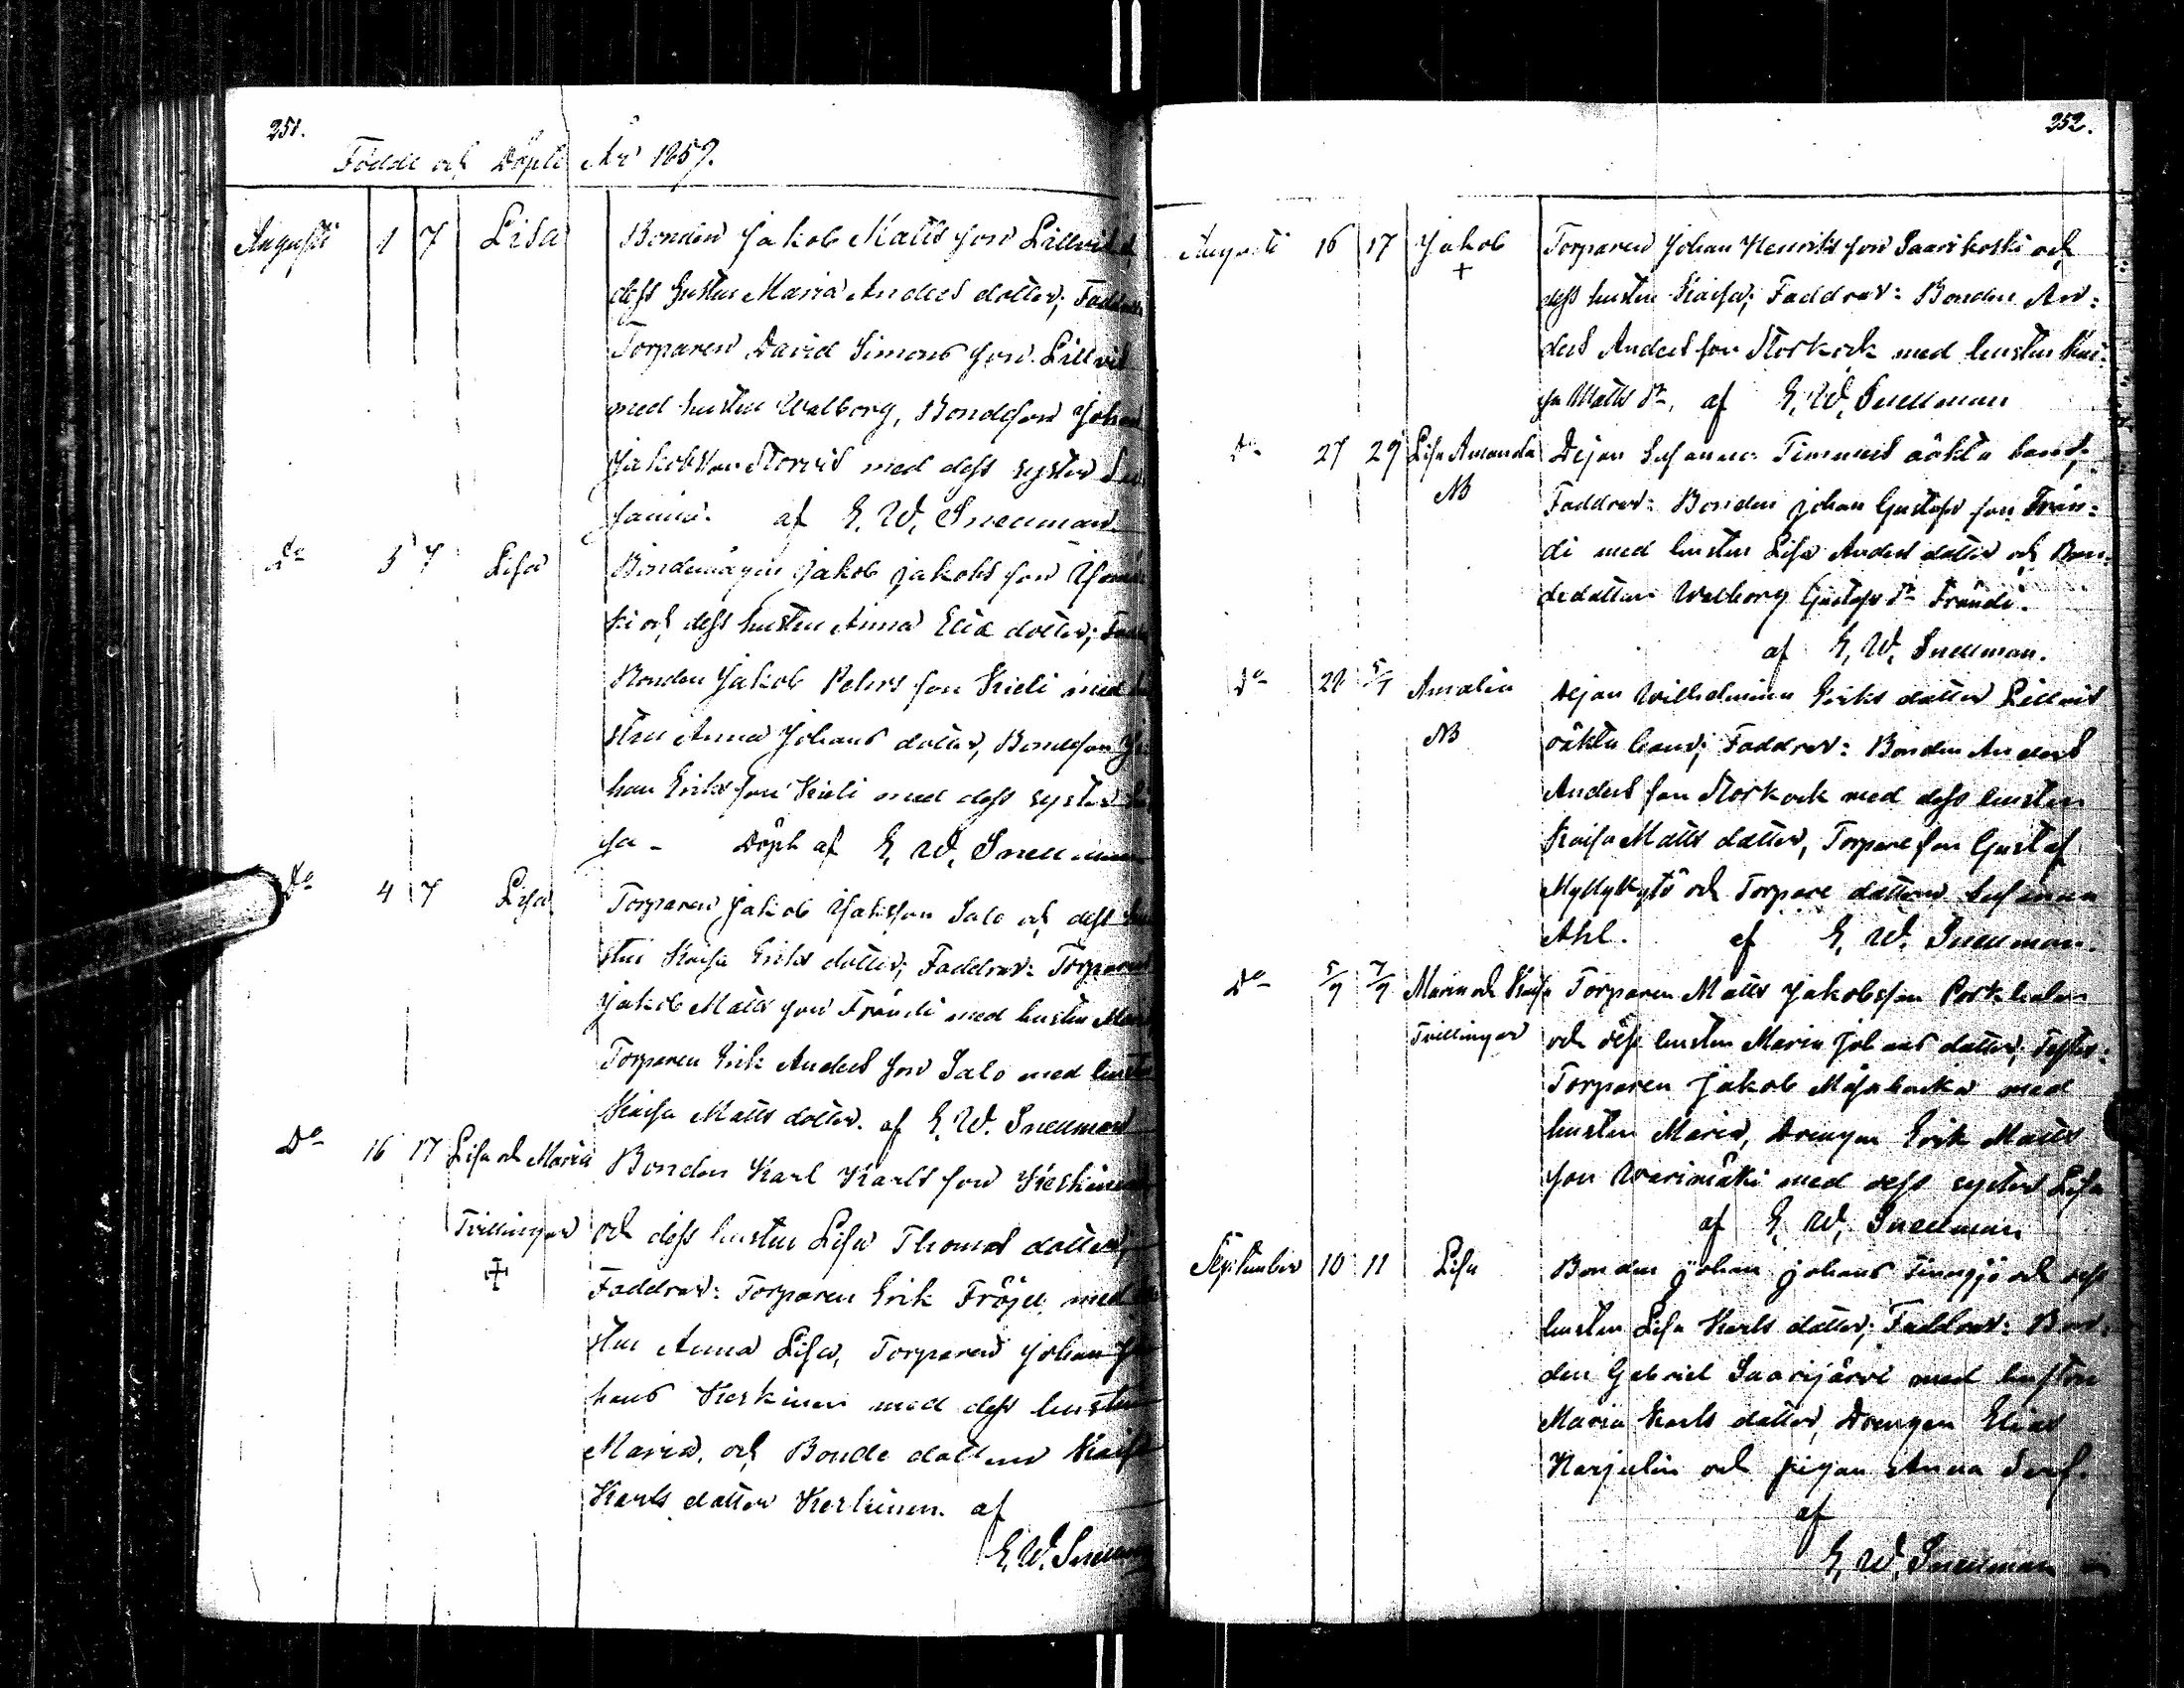 251.
Födde och Döpte År 1859.
Augusti 1 7 Lisa Bonden Jakob Matts son Lillvis
dess hustru Maria Anders dotter; Faddrar
Torparen David Simons son Lillvis
med hustru Walborg, Bondeson Johan
Jakobsson Storvis med dess syster Su
sanna. af E. W. Snellman
Do 3 7 Lisa Bondemågen Jakob Jakobs son
ki och dess hustru Anna Elia dotter;
Bonden Jakob Pehrs son Kieli med
stru Anna Johans dotter, Bondeson Jo
han Eriks son Kieli med dess syster
sa - Döpt af E. W. Snellman
Do 4 7 Lisa Torparen Jakob Jakobsson Salo och dess hu
stru Kaisa Eriks dotter; Faddrar: Torparen
Jakob Matts son Frändi med hustru
Torparen Erik Anders son Salo med hustru
Kaisa Matts dotter. af E. W. Snellman
Do 16 17 Lisa och Maria Bonden Karl Karls son Keskinen
Tvillingar och dess hustru Lisa Thomas dotter;
Faddrar: Torparen Erik Fröjd med hu
stru Anna Lisa, Torparen Johan Jo
hans Keskinen med dess hustru
Maria, och Bonde dottren Kaisa
Karls dotter Keskinen. af
E. W. Snellman
252.
Augusti 16 17 Jakob Torparen Johan Henriks son Saarikoski och
+ dess hustru Kaisa; Faddrar: Bonden An:
ders Anders son Storkock med hustru Kai:
sa Matts dr, af E. W. Snellman
Do 27 29 Lisa Amanda Pigan Susanna Timmers oäkta barn;
NB Faddrar: Bonden Johan Gustafs son Frän:
di med hustru Lisa Anders dotter och Bon:
dedottern Walborg Gustafs dr Frändi.
af E. W. Snellman.
Do 28 5/9 Amalia Pigan Wilhelmina Eriks dotter Lillvis
NB oäkta barn; Faddrar: Bonden Anders
Anders son Storkock med dess hustru
Kaisa Matts dotter, Torpare son Gustaf
Myllykytö och Torpare dottren Susanna
Ahl. af E. W. Snellman.
Do 5/9 7/9 Maria och Kaisa Torparen Matts Jakobsson Porkhalm
Tvillingar och dess hustru Maria Johans dotter;
Torparen Jakob med
hustru Maria, Drengen Erik Matts
son Warimäki med dess syster Lisa
af E. W. Snellman
September 10 11 Lisa Bonden Johan Johans och dess
hustru Lisa Karls dotter; Faddrar: Bon:
den Gabriel Saarijärvi med hustru
Maria Karls dotter, Drengen Elias
Harjulin och pigan Anna
af
E. W. Snellman